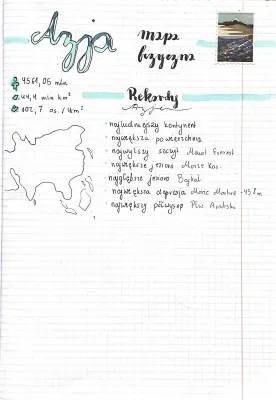 Azja
mapa
fizyczna
4561,05 mln
44,4 mln km²
102,7 os./km²
Rekordy
Azja
· najludniejszy kontynent
· największa powierzchnia
· najwyższy szczyt Mount Everest
· największe jezioro Morze Kas.
· najgłębsze jezioro Bajkał
· największa depresja Morze Martwe -438m
· największy półwysep Płw. Arabski